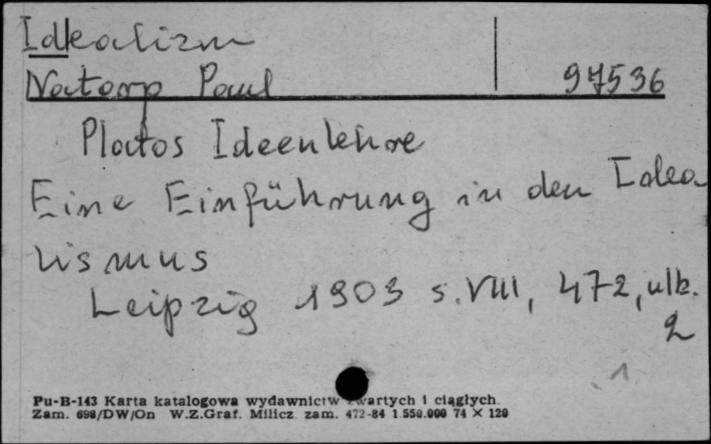 Idealizm
Natorp Paul 97536
Platos Ideenlehre
Eine Einführung in den Idea
lismus
Leipzig 1903 s. VIII, 472, ulb.
2
1
Pu-B-143 Karta katalogowa wydawnictw zwartych i ciągłych.
Zam. 698/DW/On W.Z.Graf. Milicz zam. 472-84 1.550.000 74 × 120